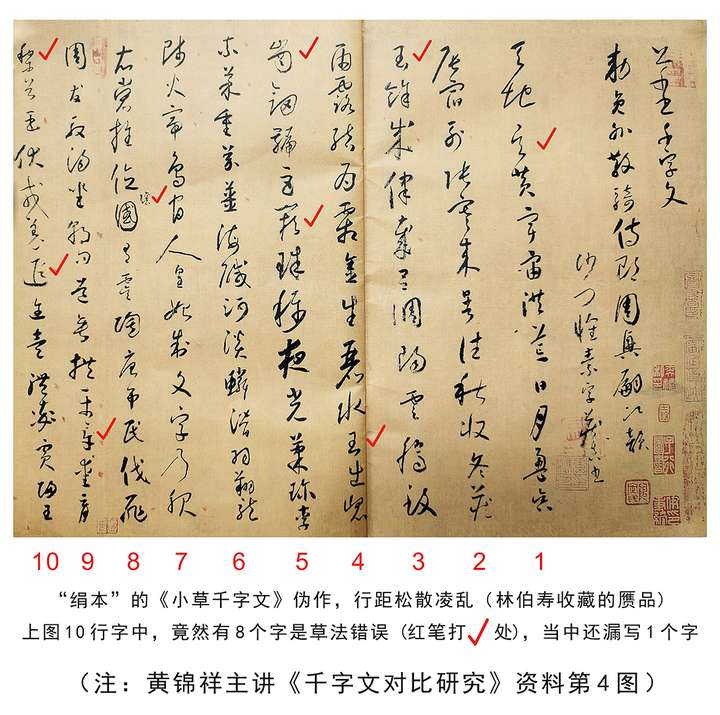 千字文
勅員外散騎侍郎周興嗣次韻
沙門懷素字藏真書
天地玄黃宇宙洪荒日月盈昃
辰宿列張寒來暑往秋收冬藏
閏餘成歲律呂調陽雲騰致
雨露結為霜金生麗水玉出崑
崗劍號巨闕珠稱夜光菓珍李
柰菜重芥薑海鹹河淡鱗潛羽翔龍
師火帝鳥官人皇始制文字乃服
衣裳推位讓國有虞陶唐弔民伐罪
周發殷湯坐朝問道垂拱平章愛育
黎首臣伏戎羌遐邇壹體率賓歸王
10 9 8 7 6 5 4 3 2 1
“绢本”的《小草千字文》伪作，行距松散凌乱（林伯寿收藏的赝品）
上图10行字中，竟然有8个字是草法错误（红笔打✓处），当中还漏写1个字
（注：黄锦祥主讲《千字文对比研究》资料第4图）